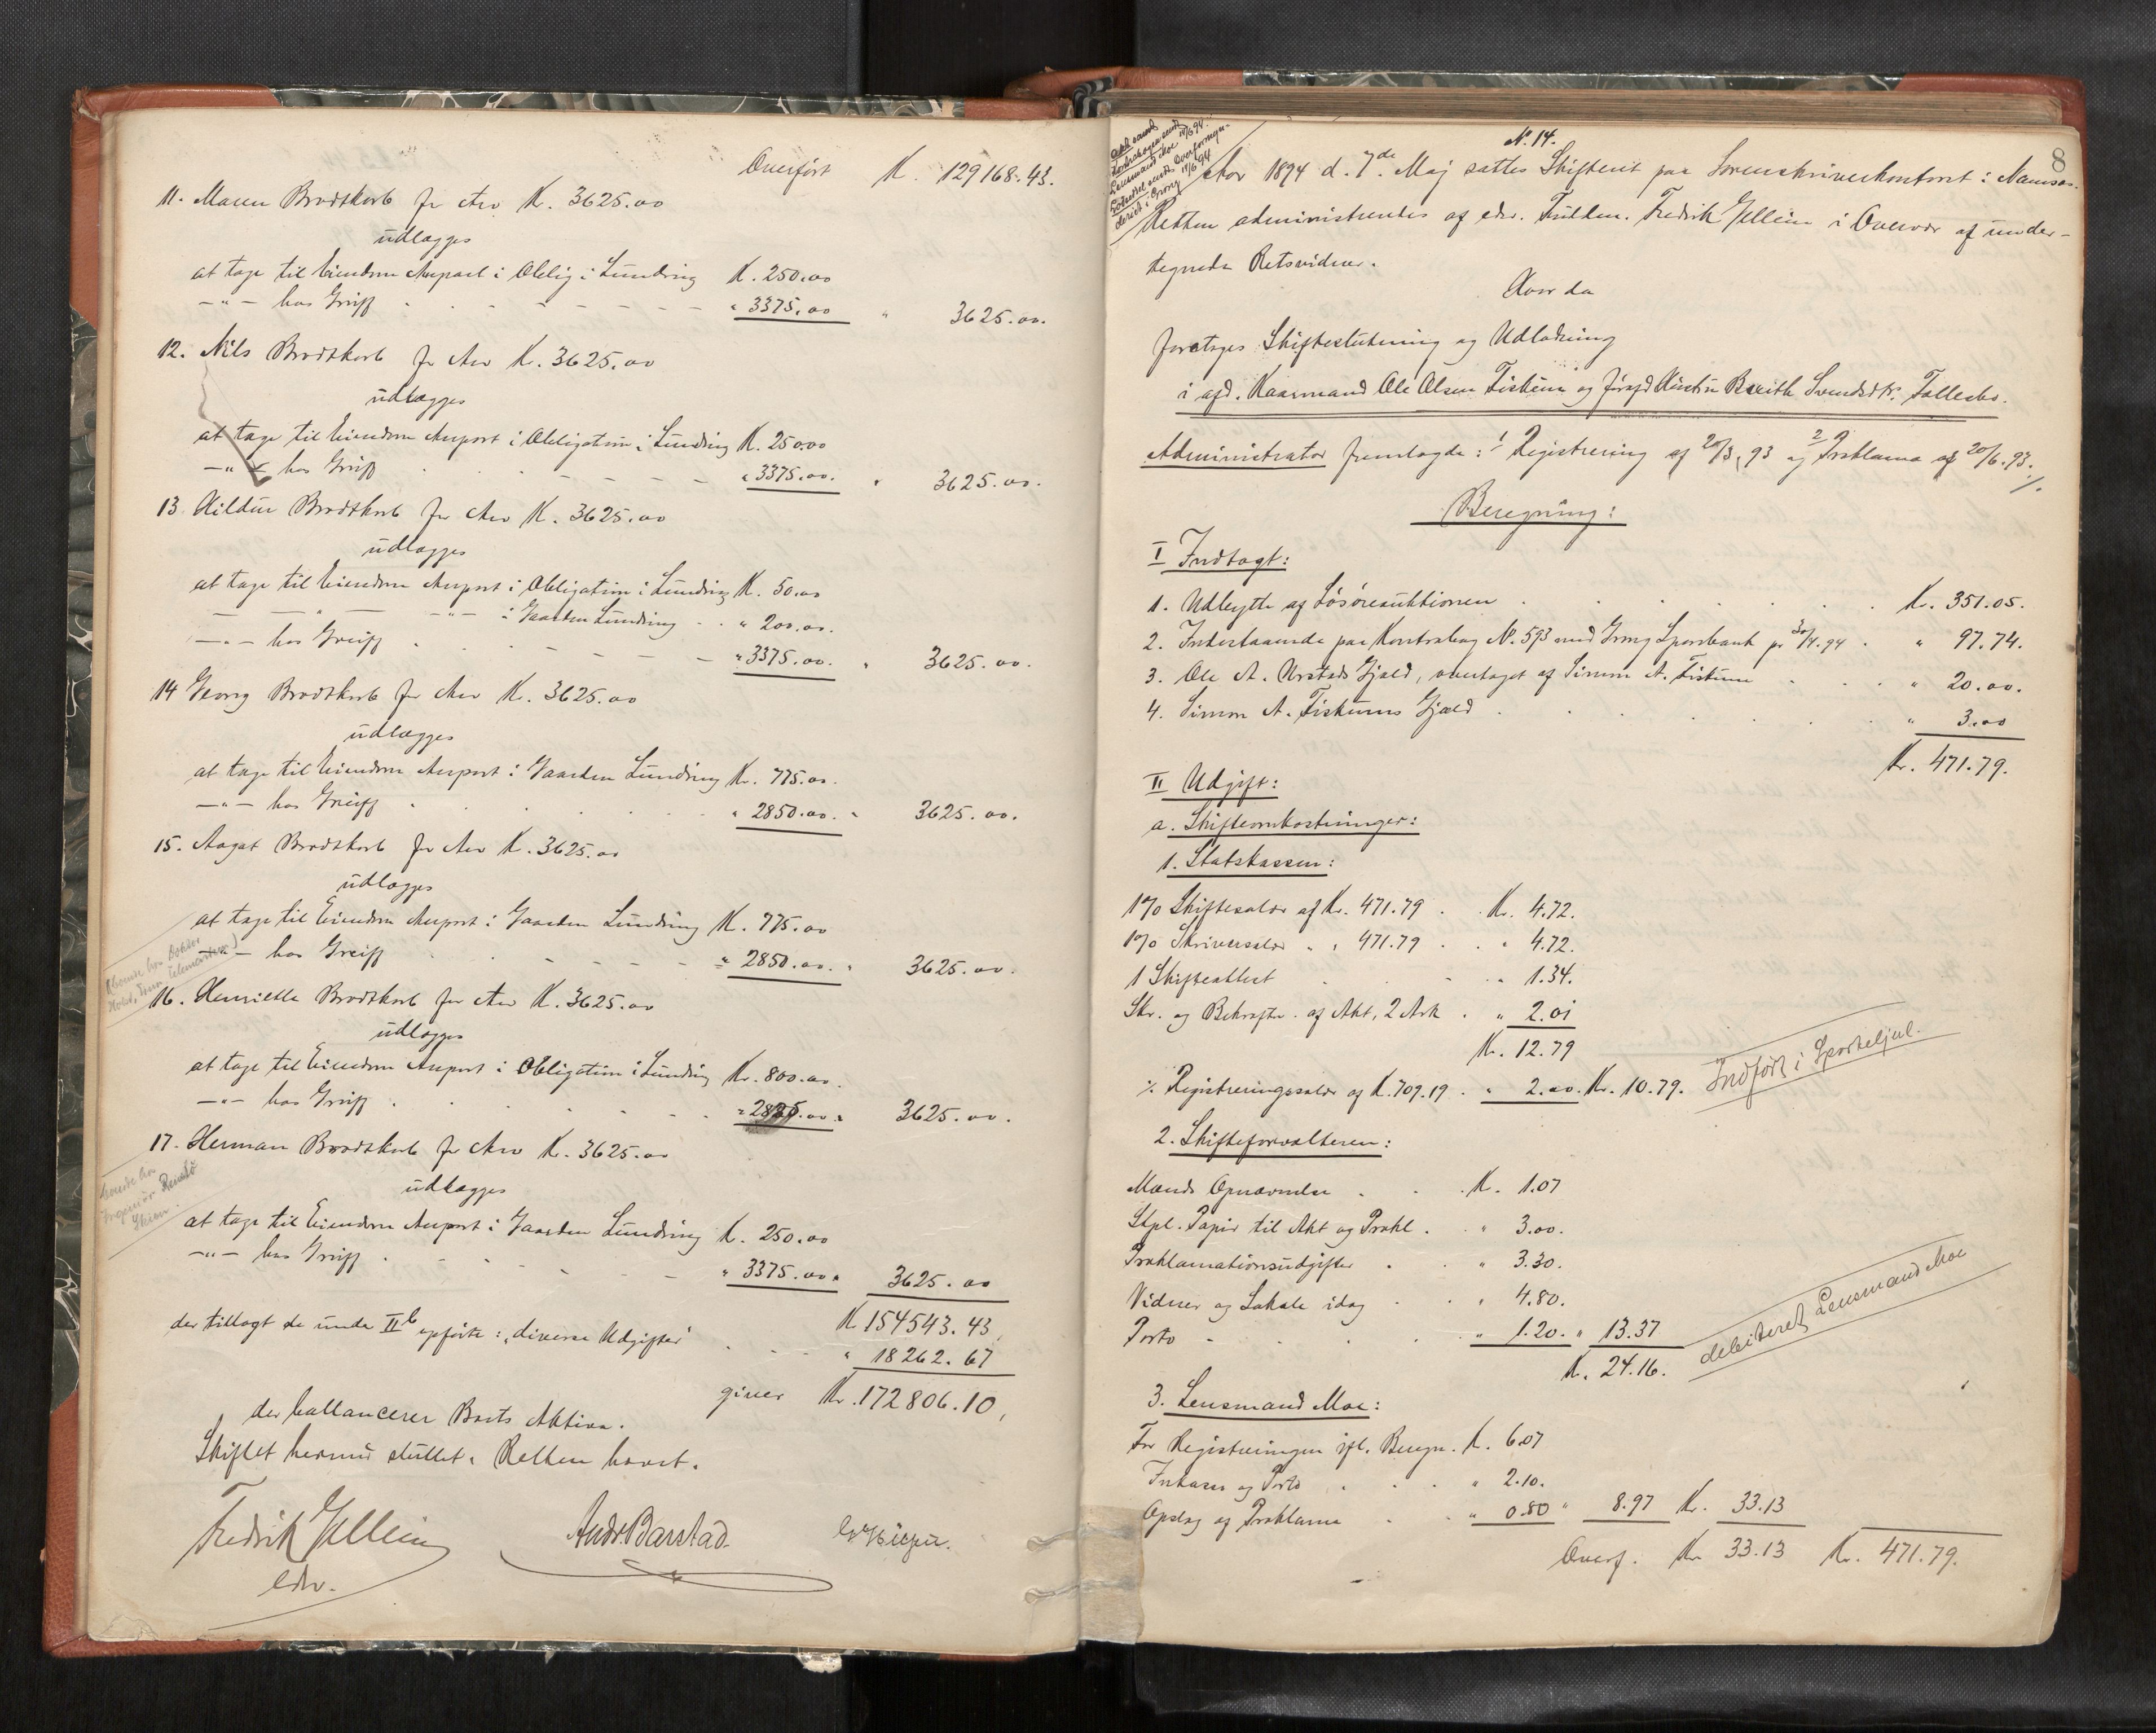 Overført K. 129168.43.
11. Maren Brodtkorb for Arv K. 3625.00
udlægges
at tage til Eiendom Anpart i Oblig. i Lundring K. 250.00
—"— hos Greiff " 3375.00 " 3625.00.
12. Nils Brodtkorb for Arv K. 3625.00
udlægges
at tage til Eiendom Anpart i Obligation i Lundring K. 250.00
—"— hos Greiff " 3375.00. " 3625.00.
13. Hildur Brodtkorb for Arv K. 3625.00
udlægges
at tage til Eiendom Anpart i Obligation i Lundring K. 50.00
— " — —"— i Gaarden Lundring " 200.00.
—"— hos Greiff " 3375.00. " 3625.00.
14 Georg Brodtkorb for Arv K. 3625.00
udlægges
at tage til Eiendom Anpart i Gaarden Lundring K. 775.00.
—"— hos Greiff " 2850.00. " 3625.00.
15. Aagot Brodtkorb for Arv K. 3625.00
udlægges
at tage til Eiendom Anpart i Gaarden Lundring K. 775.00
—"— hos Greiff " 2850.00. " 3625.00.
16. Henriette Brodtkorb for Arv K. 3625.00
udlægges
at tage til Eiendom Anpart i Obligation i Lundring Kr. 800.00.
—"— hos Greiff " 2825.00 " 3625.00.
17. Herman Brodtkorb for Arv K. 3625.00
udlægges
at tage til Eiendom Anpart i Gaarden Lundring K. 250.00
—"— hos Greiff " 3375.00 " 3625.00
K 154543.43,
der tillagt de under II b opførte: "diverse Udgifter" " 18262.67
giver Kr. 172806.10,
der ballancerer Boets Aktiva.
Skiftet hermed sluttet. Retten hævet.
Fredrik Gellein Andr. Barstad
edv.
8
No 14.
Aar 1894 d. 7de Maj sattes Skifteret paa Sorenskriverkontoret i Namsos.
Retten administreredes af edsv. Fuldm. Fredrik Gellein i Overvær af under-
tegnede Retsvidner.
Hvor da
foretoges Skifteslutning og Udlodning
i afd. Kaarmand Ole Olsen Fiskum og Kirstine Bereith Svendsdtr. Fællesbo.
Administrator fremlagde: 1 Registrering af 20/3.93 og 2 Proklama af 20/6.93. ./.
Beregning:
I Indtægt:
1. Udbytte af Løsøreauktionen Kr. 351.05.
2. Indestaaende paa Kontrabog No. 593 med Grong Sparebank pr 30/4.94 " 97.74.
3. Ole A. Urstads Gjæld, overtaget af Simon A. Fiskum " 20.00.
4. Simon A. Fiskums Gjæld " 3.00
Kr. 471.79.
II Udgift:
a. Skifteomkostninger:
1. Statskassen:
1% Skiftesalær af Kr. 471.79 Kr. 4.72.
1% Skriversalær " " 471.79 " 4.72.
1 Skifteattest " 1.34.
Skr. og Bekræfte. af Akt, 2 Ark " 2.01
Kr. 12.79
÷ Registreringssalær af K. 709.19 " 2.00. Kr. 10.79.
Indført i Sporteljul.
2. Skifteforvalteren:
Mænds Opnævnelse K. 1.07
Stpl. Papir til Akt og Prokl. " 3.00.
Proklamationsudgifter " 3.30.
Vidner og Lokale idag " 4.80.
Porto " 1.20. " 13.37
K. 24.16.
debiteret Lensmand Moe
3. Lensmand Moe:
For Registreringen ifl. Beregn. K. 6.07
Inkasso og Porto " 2.10.
Opslag af Proklama " 0.80 " 8.97 Kr. 33.13
Overf. Kr 33.13 Kr. 471.79.